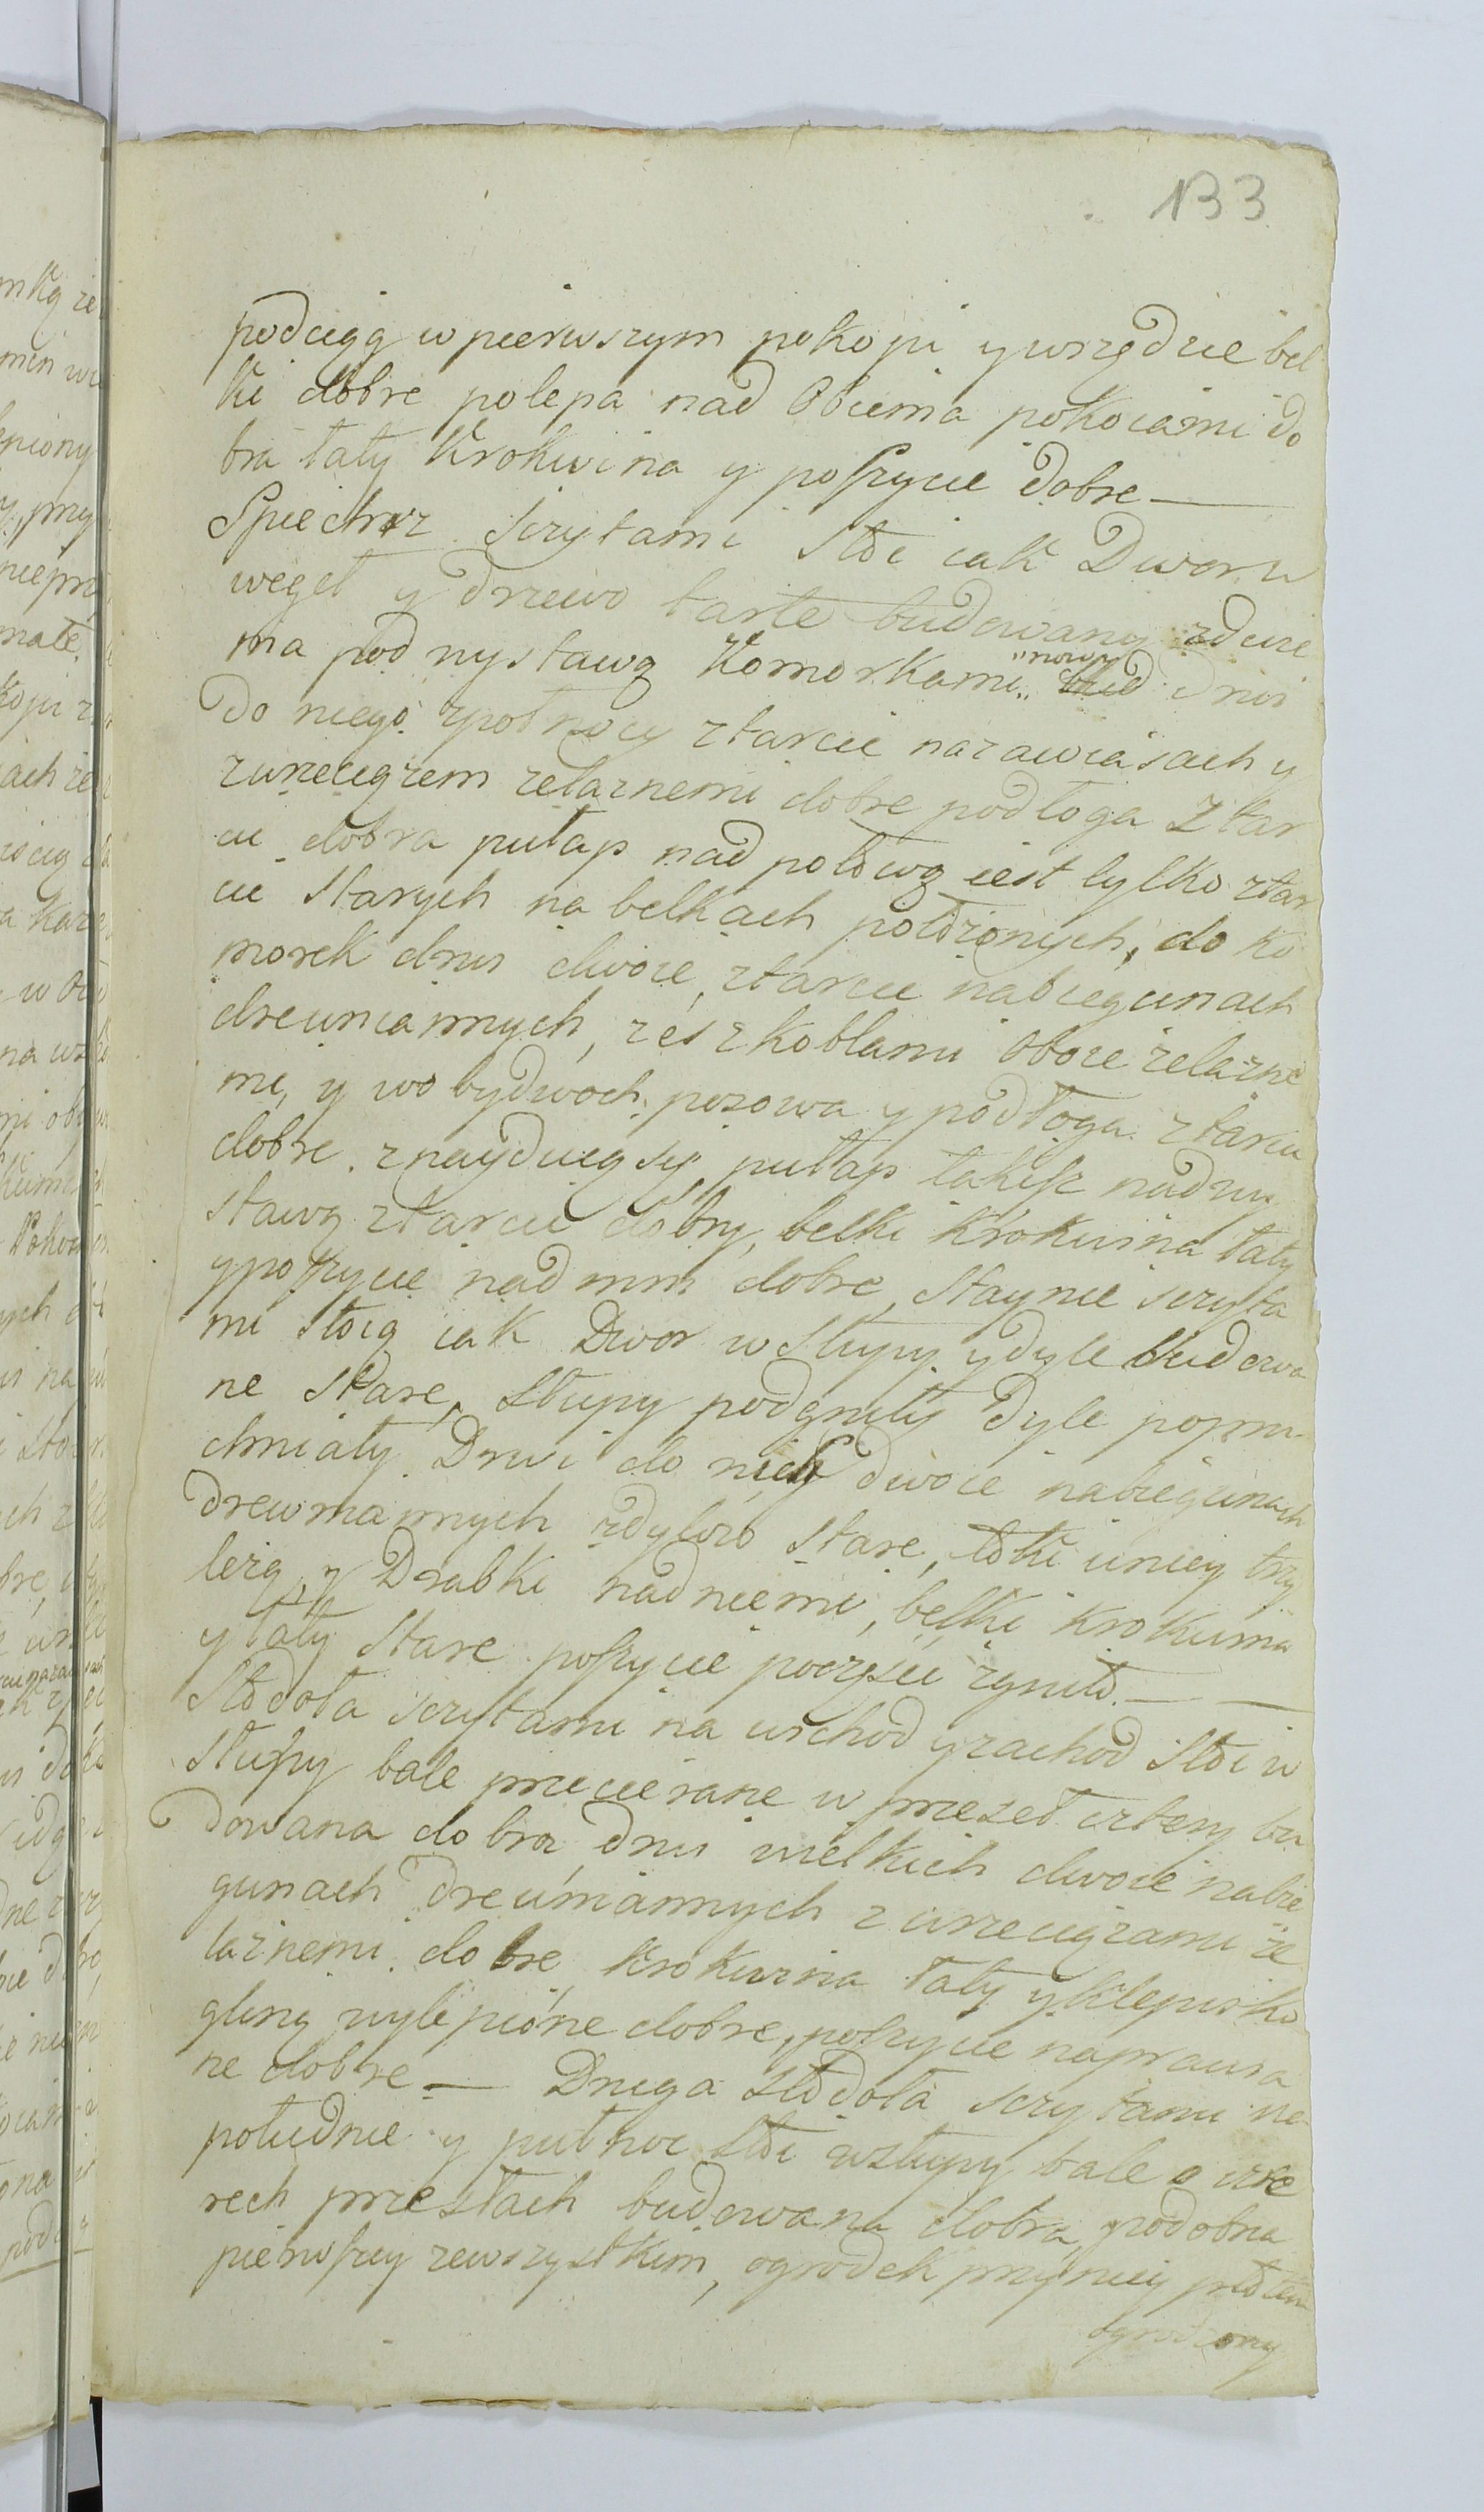 133
podciąg w pierwszym pokoju y wszędzie bel
ki dobre polepa nad Obiema pokoiami do
bra łaty Krokwina y poszycie dobre —
Spichrz sczytami stoi iak Dwor w
węgieł y drzewo tarte budowany zdwie
ma pod wystawą Komorkami „nowy” drwi
do niego zpołnocy ztarcic nazawiasach y
zwrzeciązem żelaznemi dobre podłoga z tar
cic dobra pułap nad połową iest tylko ztar
cic starych na belkach położonych, do ko
morek drwi dwoie, ztarcic nabiegunach
drewniannych, zeszkoblami oboie żelazne
mi, y wobydwoch posowa y podłoga ztarcic
dobre znayduią się pułap takisz nad wy
stawą ztarcic dobry, belki Krokwina łaty
y poszycie nad nim dobre, Staynie sczyta
mi stoią iak Dwor w słupy y dyle budowa
ne stare, słupy podgniły dyle popru
chniały Drwi do nich dwoie nabiegunach
drewniannych zdylow stare, żłobi wniey trzy
leżą y Drabki nadniemi, belki krokwina
y łaty stare poszycie poczęści zgniło — —
Stodoła sczytami na wschod y zachod stoi w
słupy bale przecierane w przeseł cztery bu
dowana dobra, drwi wielkich dwoie nabie
gunach drewniannych z wrzeciązami że
laznemi dobre krokwina łaty y klepisko
gliną wylepione dobre, poszycie naprawia
ne dobre — Druga stodoła sczytami na
południe y pułnoc stoi wsłupy bale o czte
rech przesłach budowana dobra, podobna
pierwszey zewszystkim, ogrodek przyniey płotem
ogrodzony